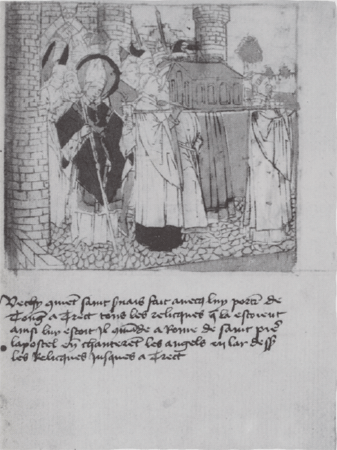 Vecy quiet saint Servais fait avecq luy porter de
Tong a Trect tous les relicques q la estoient
ainsi luy estoit Il mande a Rome de saint pre
lapostel en chanteret les angels en lar dess
les Relicques Jusques a Trect